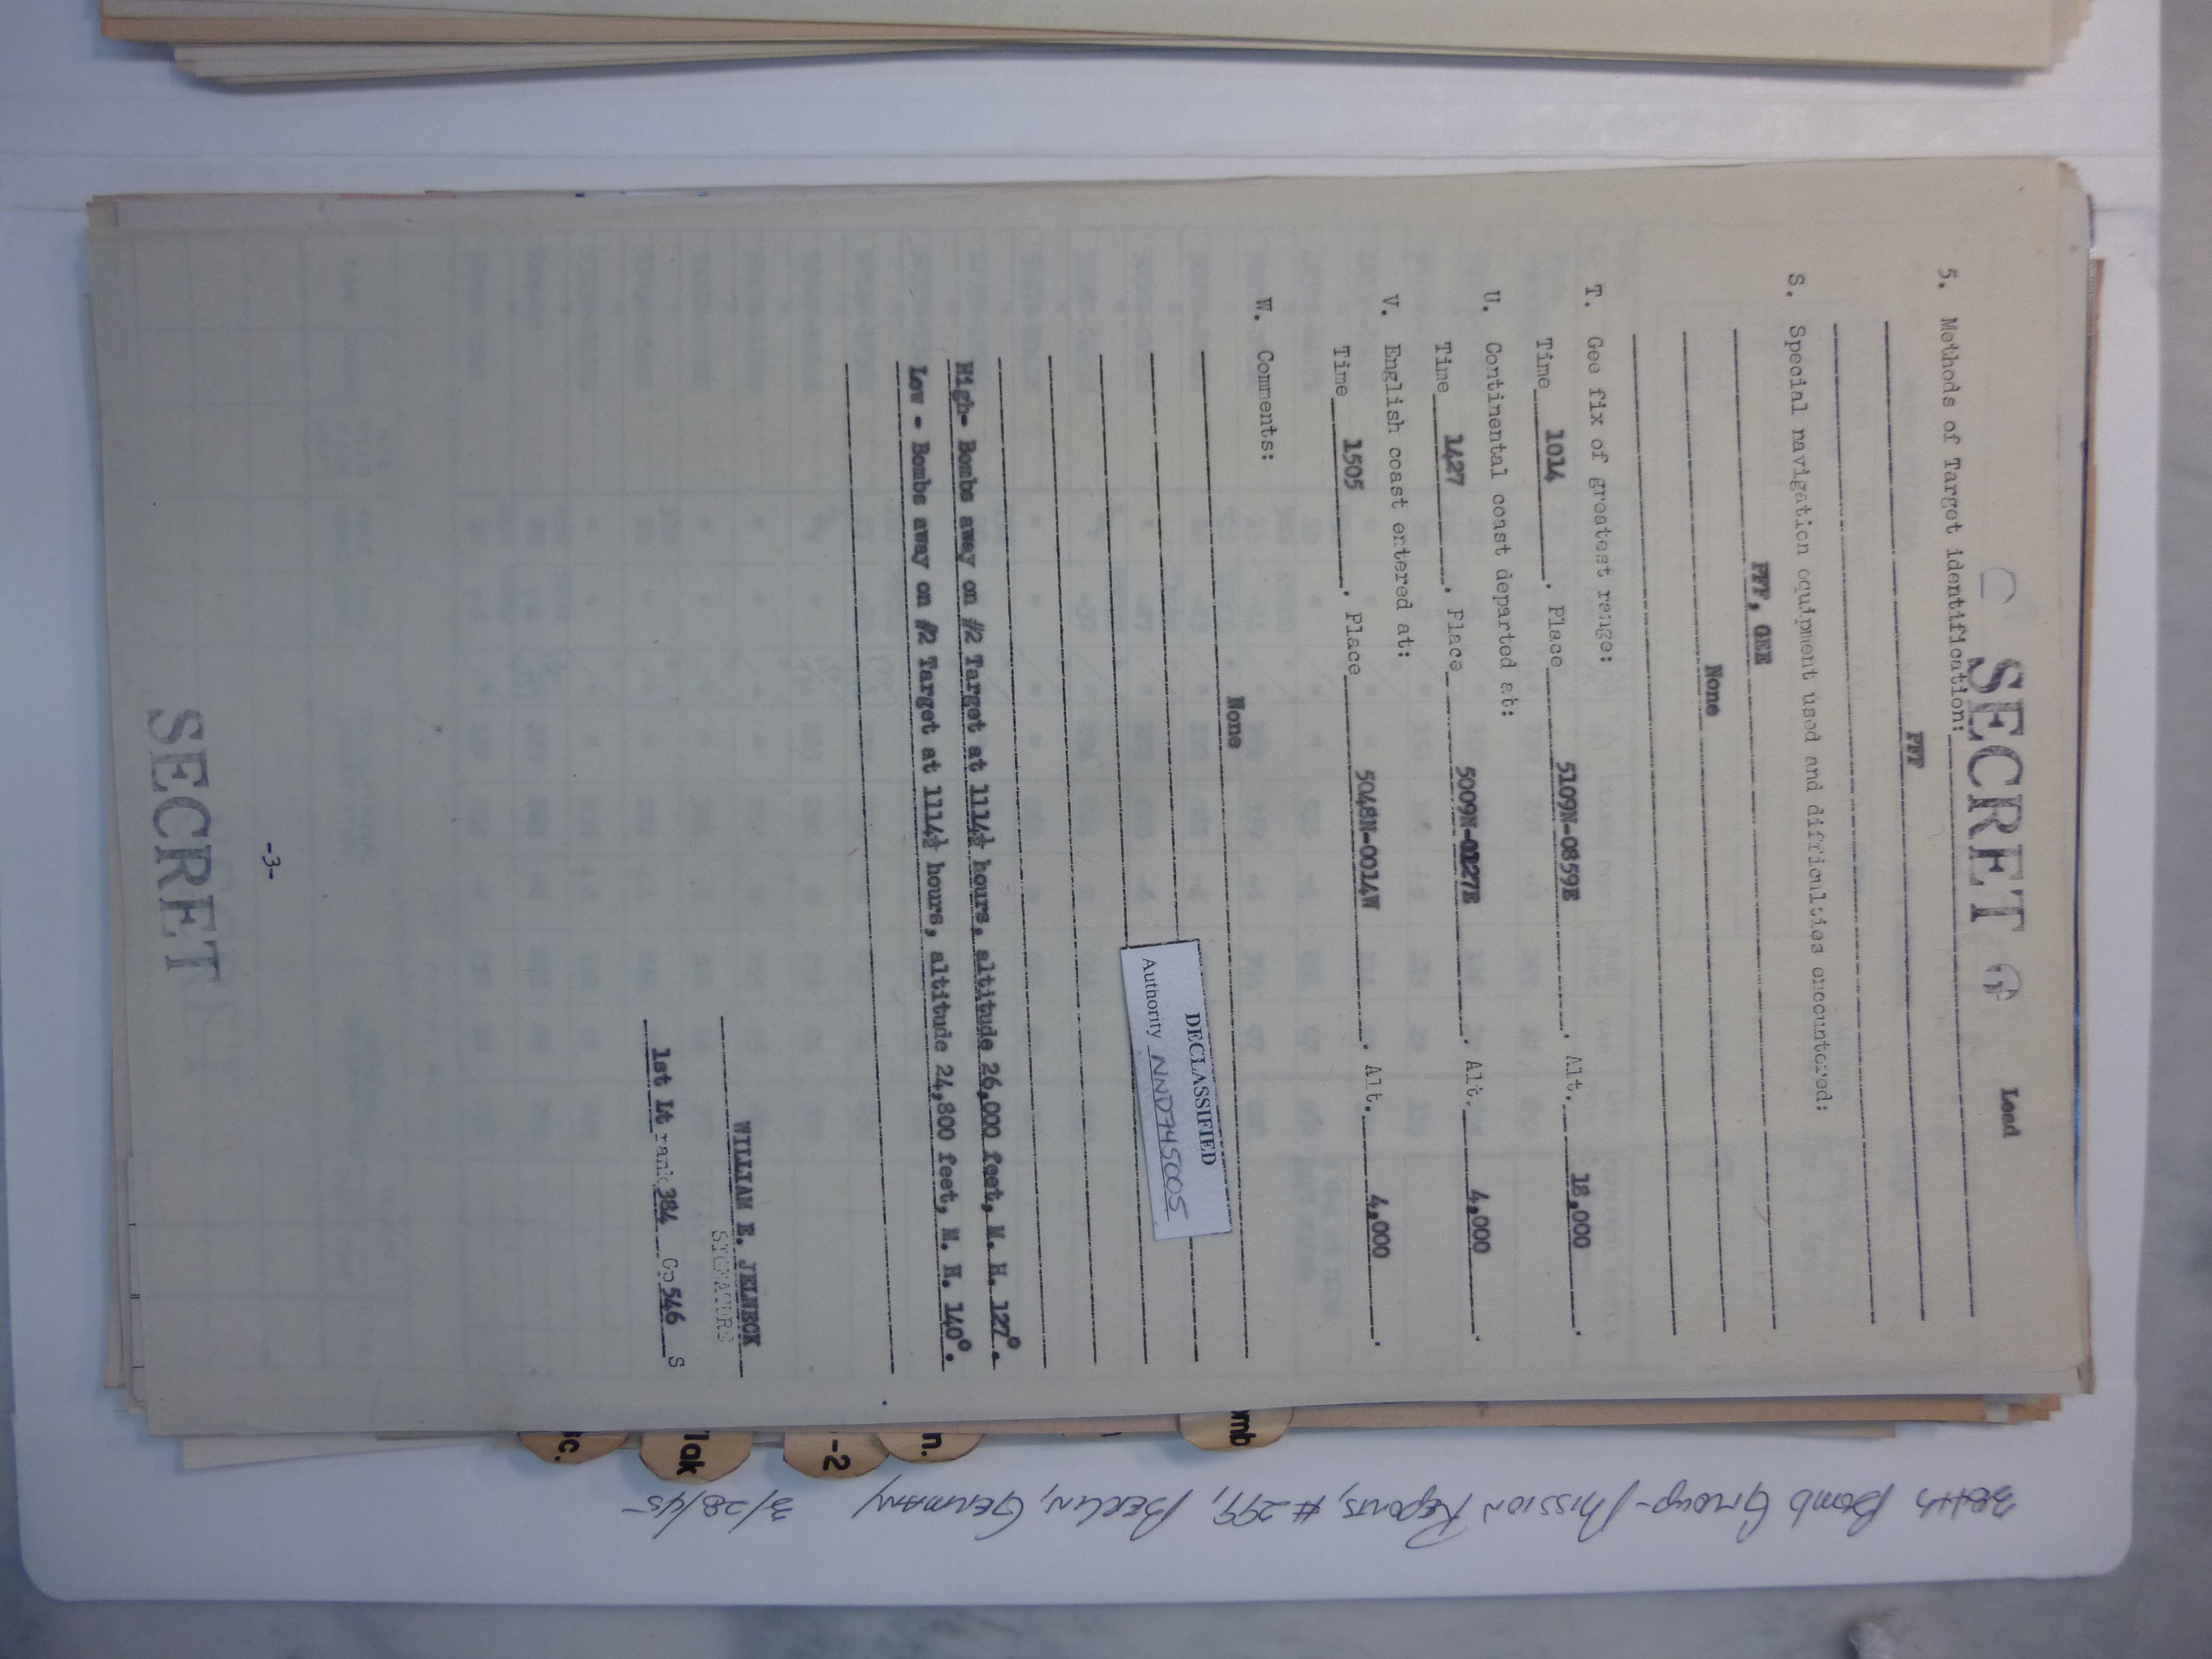 SECRET
Lead
5. Methods of Target identification:
PFF
S. Special navigation equipment used and difficulties encountered:
PFF, GEE
None
T. Gee fix of greatest range:
Time 1014 . Place 5109N-0859E . Alt. 18,000 .
U. Continental coast departed at:
Time 1427 . Place 5009N-0127E . Alt. 4,000 .
V. English coast entered at:
Time 1505 . Place 5048N-0014W . Alt. 4,000 .
W. Comments:
None
DECLASSIFIED
Authority NND745005
High- Bombs away on #2 Target at 1114½ hours, altitude 26,000 feet, M. H. 127°.
Low - Bombs away on #2 Target at 1114½ hours, altitude 24,800 feet, M. H. 140°.
WILLIAM E. JELNECK
SIGNATURE
1st Lt rank 384 Gp 546 S
-3-
SECRET
omb
n.
-2
lak
c.
384th Bomb Group - Mission Reports, #299, Berlin, Germany 3/28/45